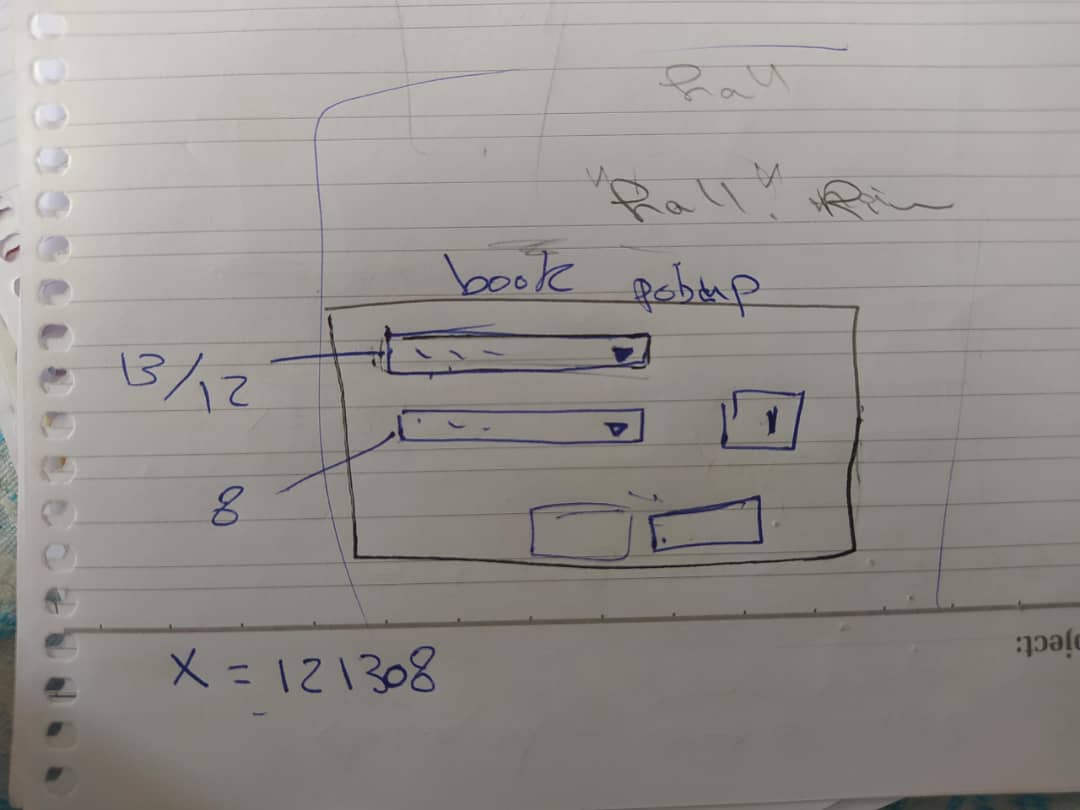 hall
"hall"
book pobup
13/12
8
X = 121308